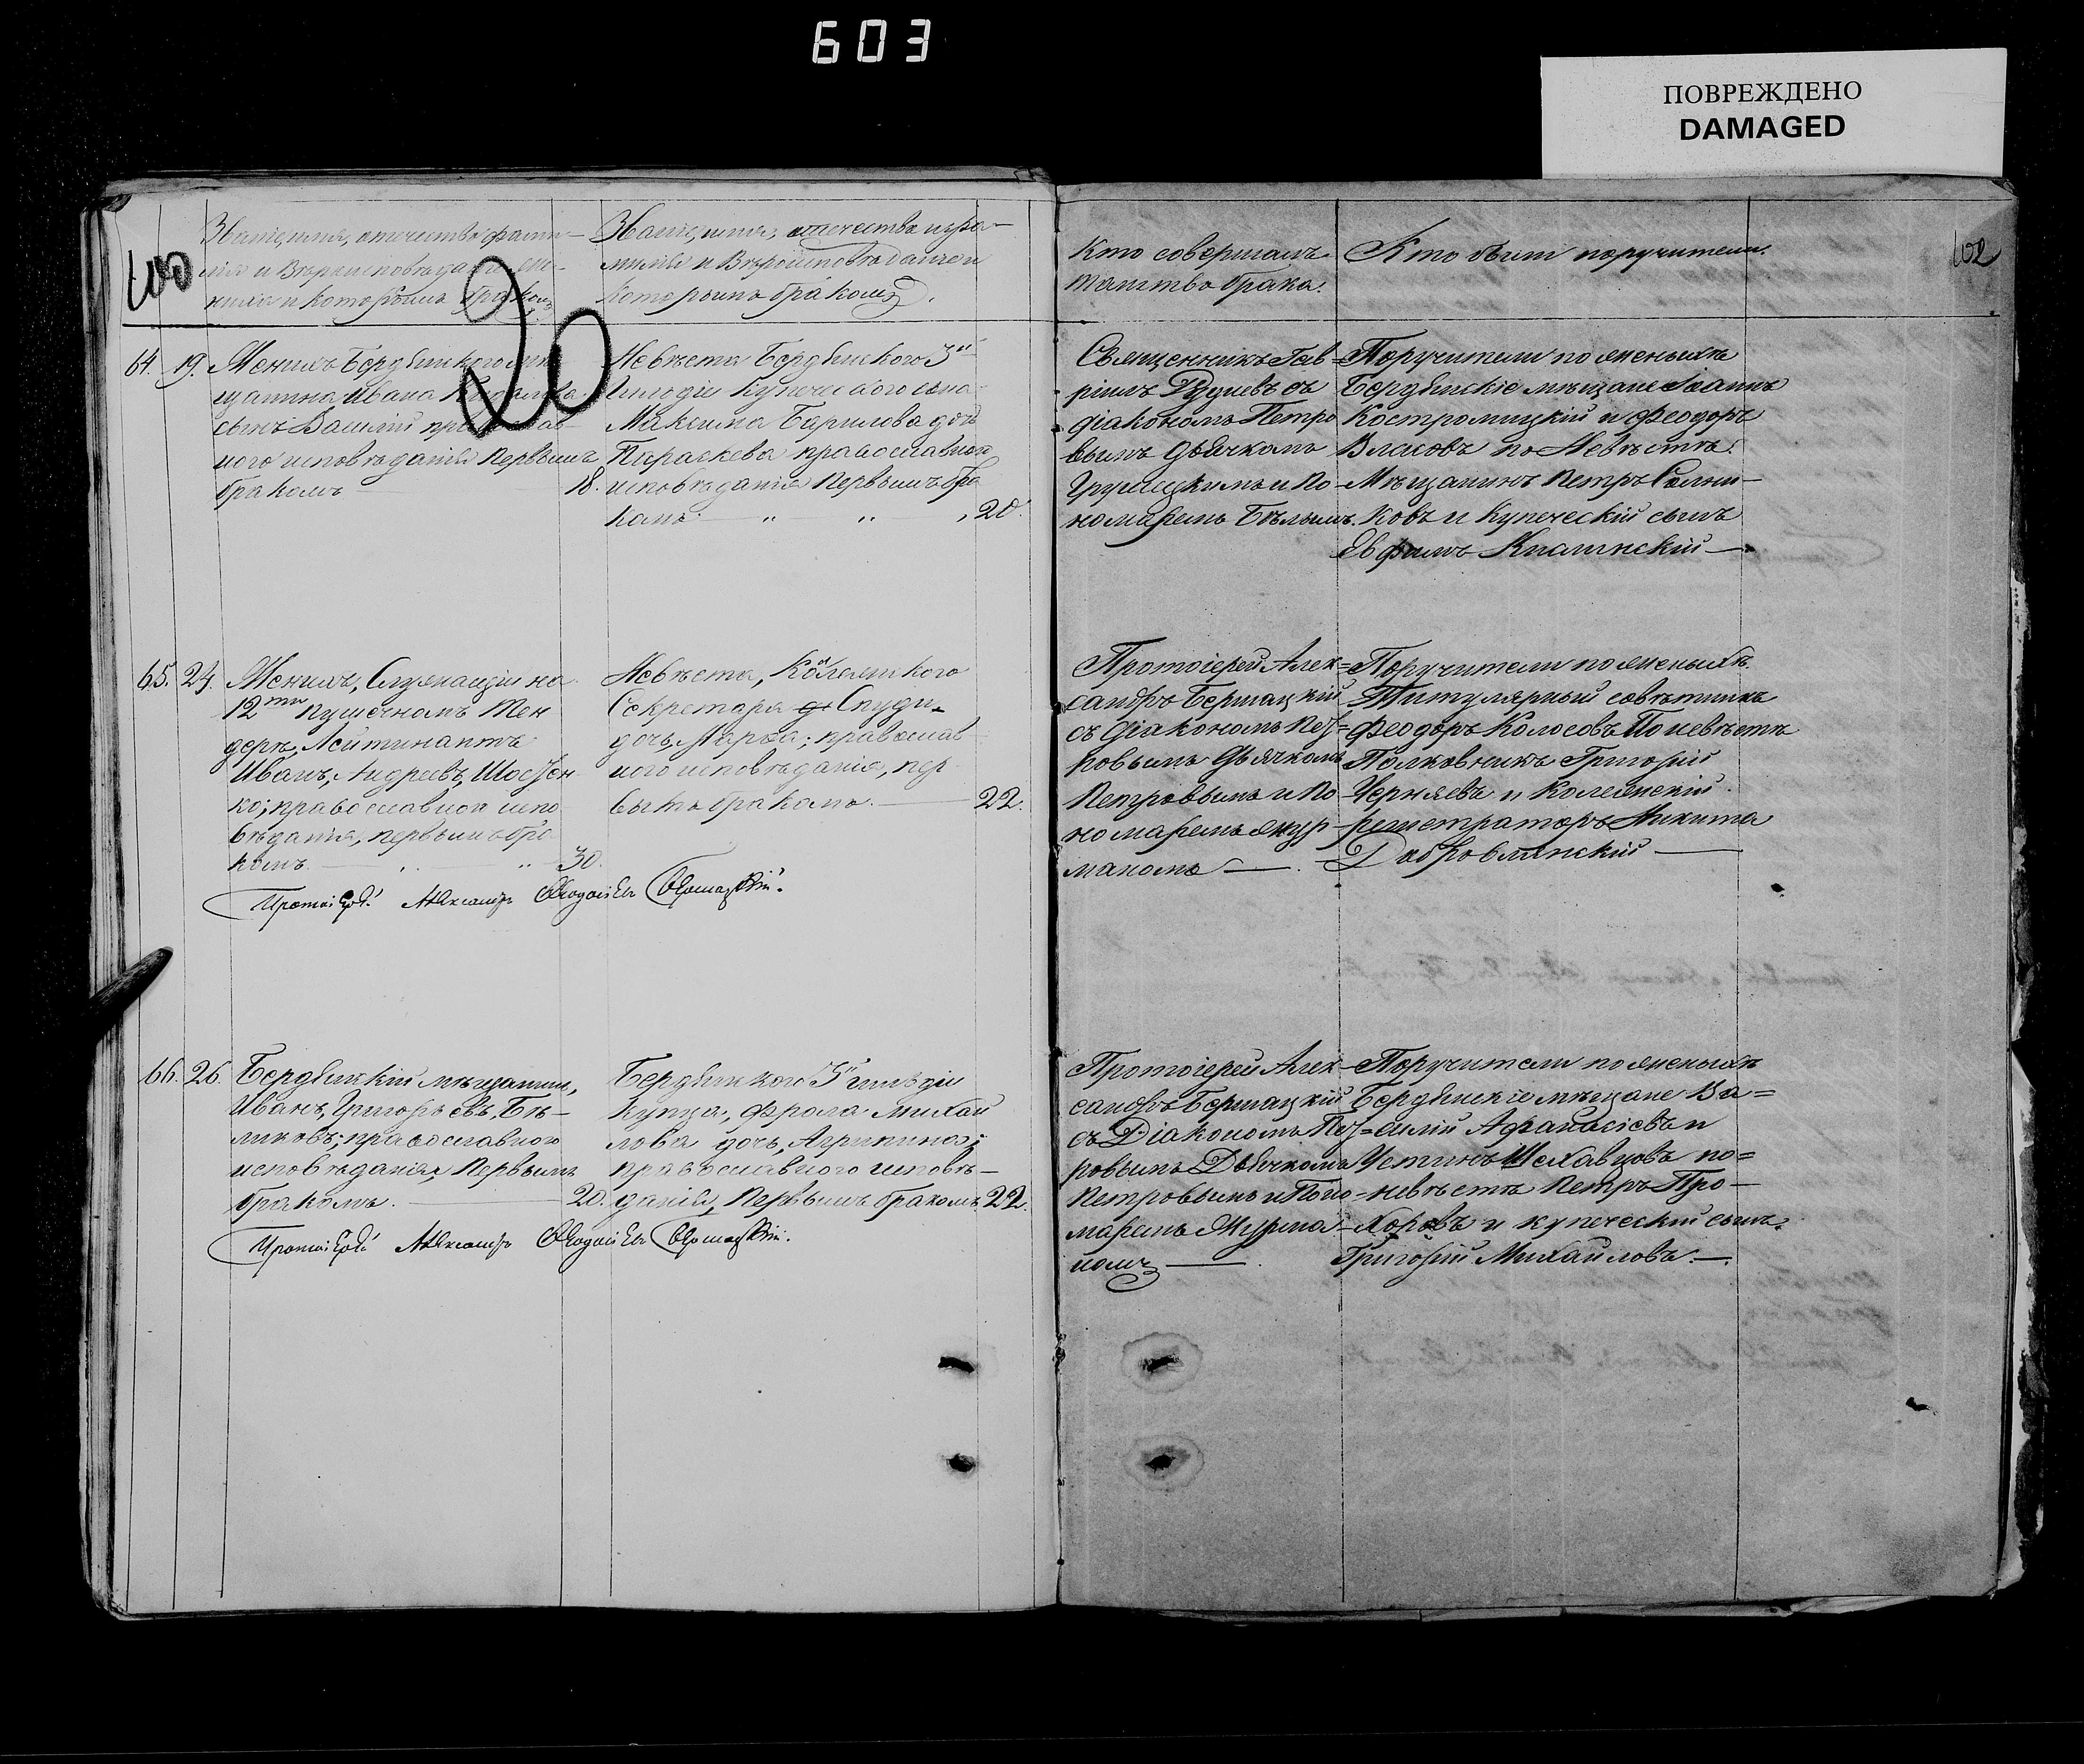 603
ПОВРЕЖДЕНО
DAMAGED
Званіе, имя, отечество, фами-
лія и Вероисповѣданіе же-
ниха и которымъ бракомъ
Званіе, имя, отечество и фа-
милія и Вѣроисповѣданіе и
которымъ бракомъ.
Кто совершалъ
таинство брака.
Кто были поручители.
102
20
64. 19. Женихъ Бердянскаго мѣ-
щанина Ивана
сынъ Василій православ-
наго исповѣданія первымъ
бракомъ 18.
Невѣста Бердянскаго 3й
гильдіи купеческаго сына
Максима Гаврилова дочь
Параскева православнаго
исповѣданія первымъ бра
комъ „ „ 20.
Священникъ Гав-
ріилъ съ
діакономъ Петро
вымъ дьячкомъ
и по-
номаремъ Бѣлымъ.
Поручители по женихѣ
Бердянскіе мѣщане Іоаннъ
Костромицкій и Феодоръ
Власовъ по Невѣстѣ:
Мѣщанинъ Петръ Сальни-
ковъ и купеческій сынъ
Евфимъ
65. 24. Женихъ, Служащій на
12ти пушечномъ Тен
дерѣ, Лейтинантъ
Иванъ, Андреевъ,
ко; православнаго испо
вѣданія, первымъ бра
комъ „ 30.
Невѣста, Колежскаго
Секретаря Спуди-
дочь Марѳа; православ
наго исповѣданія, пер
вымъ бракомъ. 22.
Протоіерей Алек-
сандръ Бершацкій
съ діакономъ Пет-
ровымъ дьячкомъ
Петровымъ и по
номаремъ Жур-
маномъ
Поручители по женихѣ.
Титулярный совѣтникъ
Феодоръ Колосовъ По невѣстѣ
Полковникъ Григорій
Черняевъ и Колежскій
регистраторъ Никита
Добровлянскій
Протоіерей Александръ Бершацкій.
66. 26. Бердянскій мѣщанинъ,
Иванъ, Григорьевъ, Бѣ-
ликовъ; православнаго
исповѣданія, Первымъ
бракомъ. 20.
Бердянскаго 3й гильдіи
купца, Фрола Михай
лова дочь, Агрипина;
православнаго исповѣ-
данія, Первымъ бракомъ, 22.
Протоіерей Алек-
сандръ Бершацкій
съ Діакономъ Пет-
ровымъ Дьячкомъ
Петровымъ и Поно-
маремъ Журма-
номъ
Поручители по женихѣ
Бердянскіе мѣщане Ва-
силій Афанасіевъ и
Устинъ Шехавцовъ по-
невѣстѣ Петръ Про-
хоровъ и купеческій сынъ
Григорій Михайловъ.
Протоіерей Александръ Бершацкій.